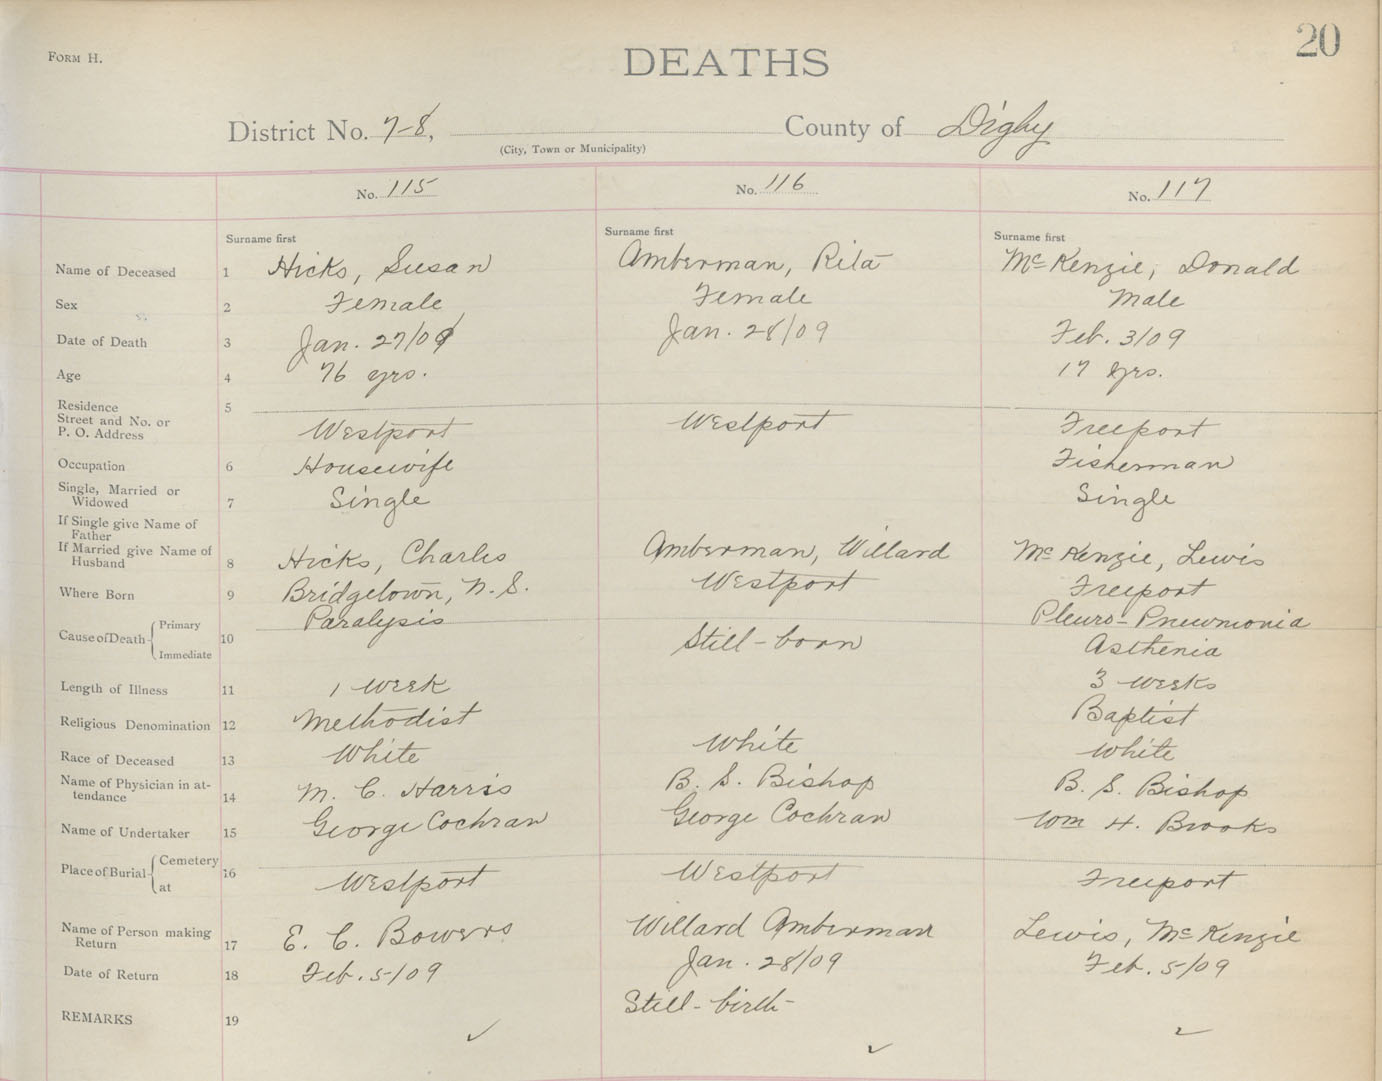 20
FORM H.
DEATHS
District No. 7-8, County of Digby
(City, Town or Municipality)
No. 115 No. 116 No. 117
Surname first Surname first Surname first
Name of Deceased 1 Hicks, Susan Amberman, Rita McKenzie, Donald
Sex 2 Female Female Male
Date of Death 3 Jan. 27/09 Jan. 28/09 Feb. 3/09
Age 4 76 yrs. 17 yrs.
Residence 5
Street and No. or
P. O. Address Westport Westport Freeport
Occupation 6 Housewife Fisherman
Single, Married or
Widowed 7 Single Single
If Single give Name of
Father
If Married give Name of
Husband 8 Hicks, Charles Amberman, Willard McKenzie, Lewis
Where Born 9 Bridgetown, N.S. Westport Freeport
Cause of Death Primary 10 Paralysis Still-born Pleuro-Pneumonia
Immediate Asthenia
Length of Illness 11 1 week 3 weeks
Religious Denomination 12 Methodist Baptist
Race of Deceased 13 White White White
Name of Physician in at-
tendance 14 M. C. Harris B. S. Bishop B. S. Bishop
Name of Undertaker 15 George Cochran George Cochran Wm H. Brooks
Place of Burial Cemetery 16
at Westport Westport Freeport
Name of Person making
Return 17 E. C. Bowers Willard Amberman Lewis, McKenzie
Date of Return 18 Feb. 5/09 Jan. 28/09 Feb. 5/09
REMARKS 19 Still-birth